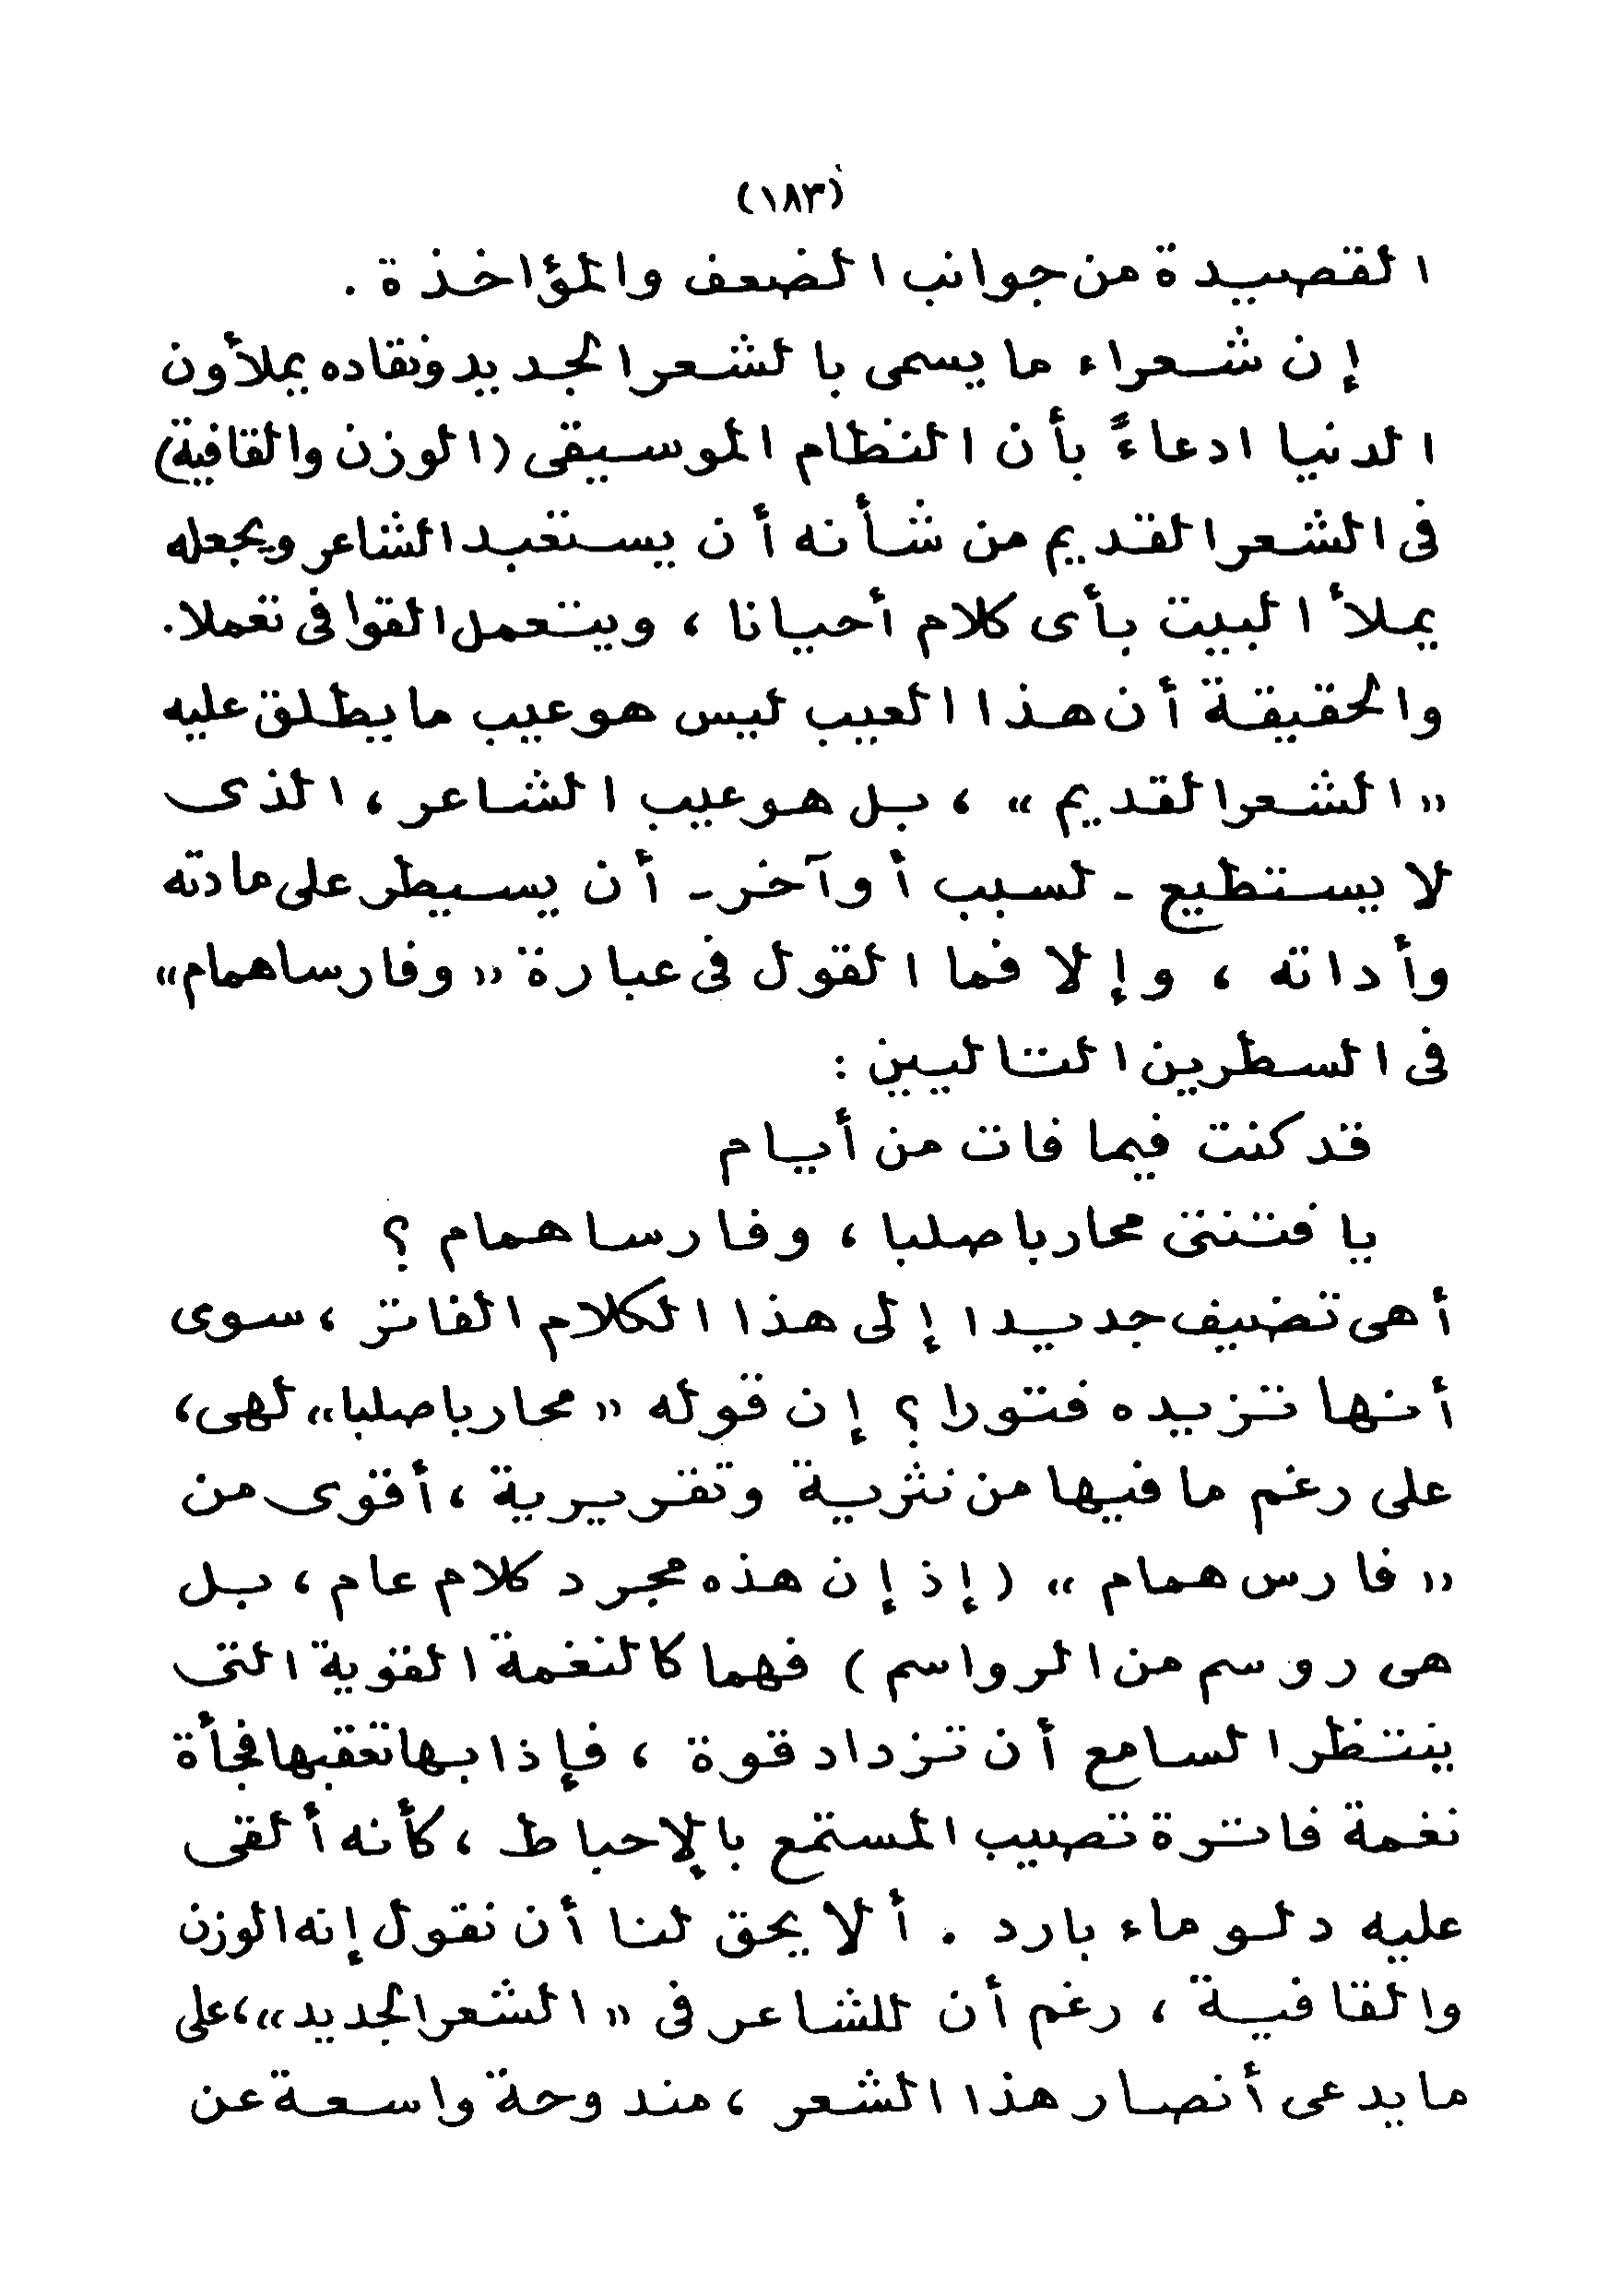 (١٨٣)
القصيدة من جوانب الضعف والمؤاخذة .
إن شعراء ما يسمى بالشعر الجديد ونقاده يملأون
الدنيا ادعاءً بأن النظام الموسيقى (الوزن والقافية)
فى الشعر القديم من شأنه أن يستعبد الشاعر ويجعله
يملأ البيت بأى كلام أحيانا ، ويتعمل القوافى تعملا .
والحقيقة أن هذا العيب ليس هو عيب ما يطلق عليه
« الشعر القديم » ، بل هو عيب الشاعر ، الذى
لا يستطيع - لسبب أو آخر - أن يسيطر على مادته
وأداته ، وإلا فما القول فى عبارة « وفارسا همام »
فى السطرين التاليين :
قد كنت فيما فات من أيام
يا فتنتى محاربا صلبا ، وفارسا همام ؟
أهى تضيف جديدا إلى هذا الكلام الفاتر ، سوى
أنها تزيده فتورا ؟ إن قوله « محاربا صلبا » لهى ،
على رغم ما فيها من نثرية وتقريرية ، أقوى من
« فارس همام » ( إذ إن هذه مجرد كلام عام ، بل
هى روسم من الرواسم ) فهما كالنغمة القوية التى
ينتظر السامع أن تزداد قوة ، فإذا بها تعقبها فجأة
نغمة فاترة تصيب المستمع بالإحباط ، كأنه ألقى
عليه دلو ماء بارد . ألا يحق لنا أن نقول إنه الوزن
والقافية ، رغم أن للشاعر فى « الشعر الجديد » ، على
ما يدعى أنصار هذا الشعر ، مندوحة واسعة عن